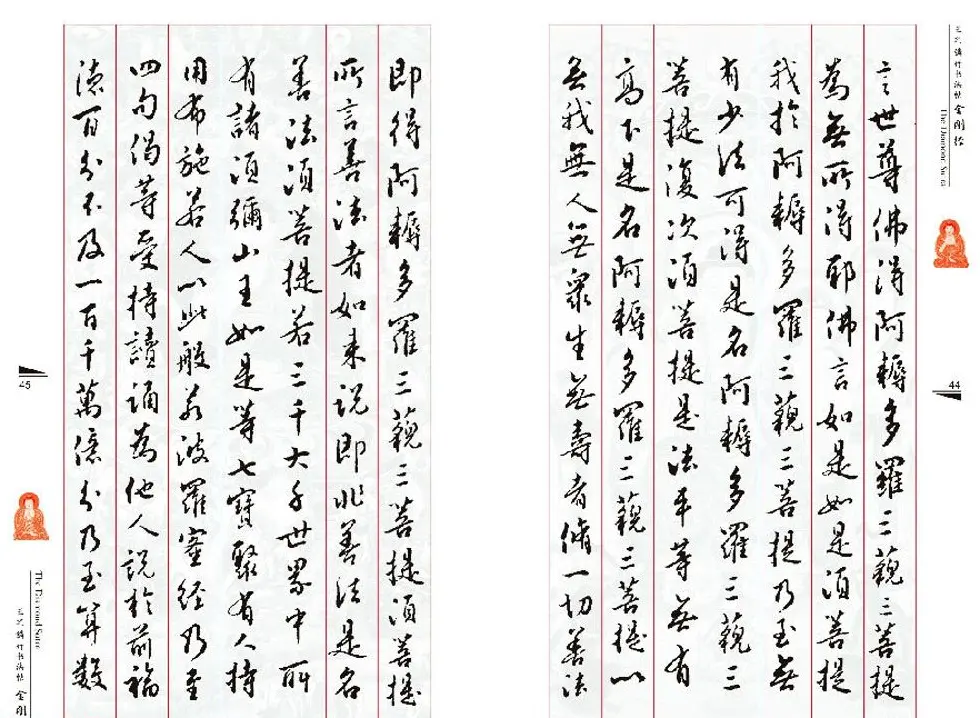 金刚经
The Diamond Sutra
44
言世尊佛得阿耨多羅三藐三菩提
為無所得耶佛言如是如是須菩提
我於阿耨多羅三藐三菩提乃至無
有少法可得是名阿耨多羅三藐三
菩提復次須菩提是法平等無有
高下是名阿耨多羅三藐三菩提以
無我無人無眾生無壽者脩一切善法
即得阿耨多羅三藐三菩提須菩提
所言善法者如来說即非善法是名
善法須菩提若三千大千世界中所
有諸須彌山王如是等七寶聚有人持
用布施若人以此般若波羅蜜經乃至
四句偈等受持讀誦為他人說於前福
德百分不及一百千萬億分乃至算數
45
The Diamond Sutra
金刚